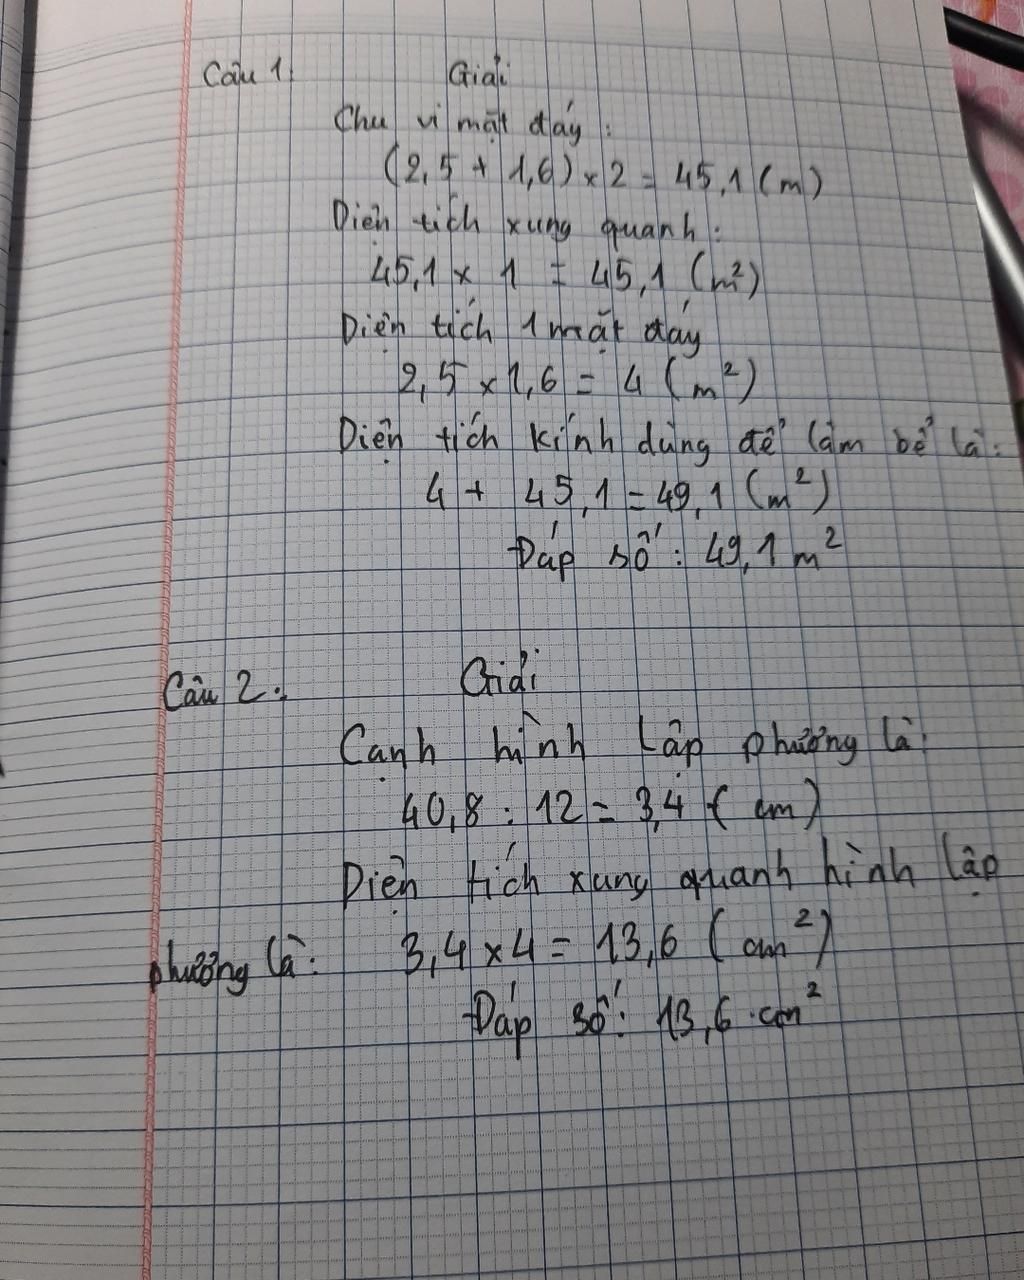 Câu 1. Giải
Chu vi mặt đáy:
(2,5 + 1,6) × 2 = 45,1 (m)
Diện tích xung quanh:
45,1 × 1 = 45,1 (m²)
Diện tích 1 mặt đáy
2,5 × 1,6 = 4 (m²)
Diện tích kính dùng để làm bể là:
4 + 45,1 = 49,1 (m²)
Đáp số: 49,1 m²
Câu 2. Giải
Cạnh hình lập phương là:
40,8 : 12 = 3,4 (cm)
Diện tích xung quanh hình lập
phương là: 3,4 × 4 = 13,6 (cm²)
Đáp số: 13,6 cm²